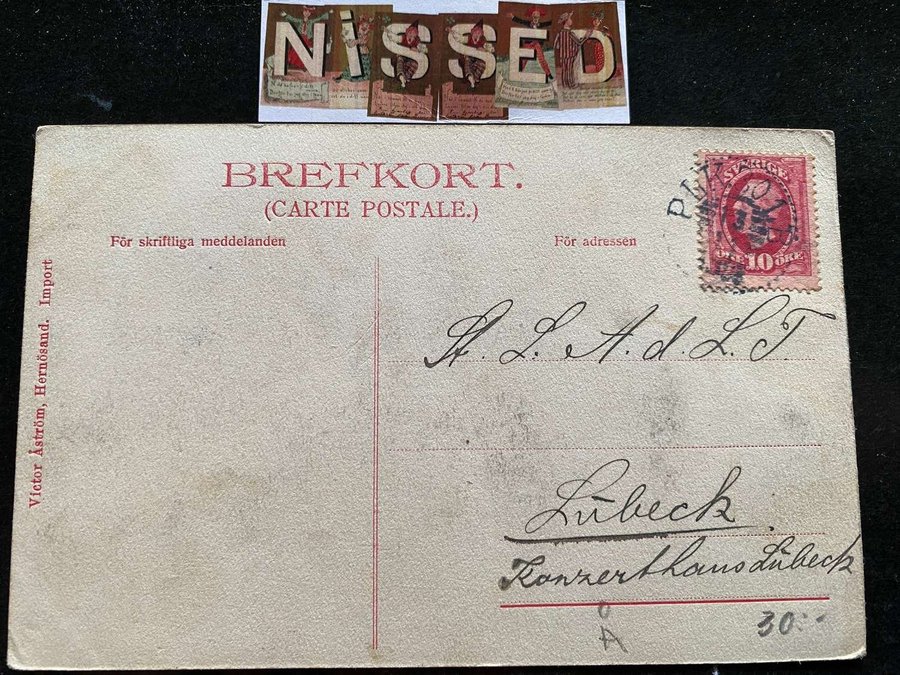 NISSED
BREFKORT.
(CARTE POSTALE.)
För skriftliga meddelanden
För adressen
SVERIGE
10
ÖRE
Victor Åström, Hernösand. Import
A. L. A. d. L. T.
Lübeck
Konzerthaus Lübeck
30:-